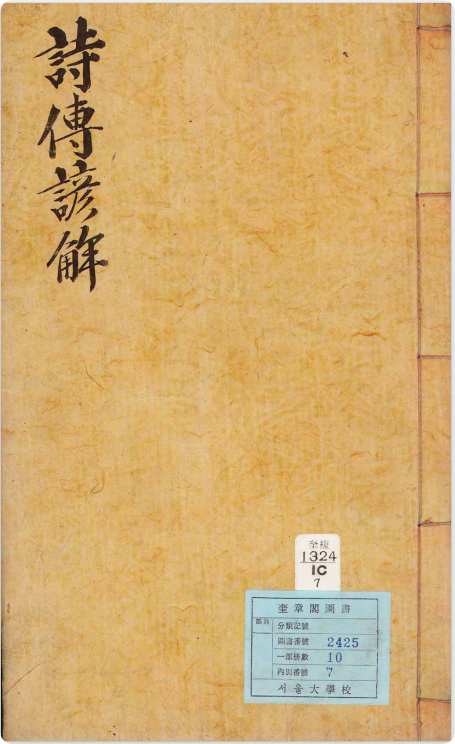 詩傳諺解
奎複
1324
1C
7
奎章閣圖書
部員
分類記號
圖書番號 2425
一部冊數 10
內別番號 7
서울大學校